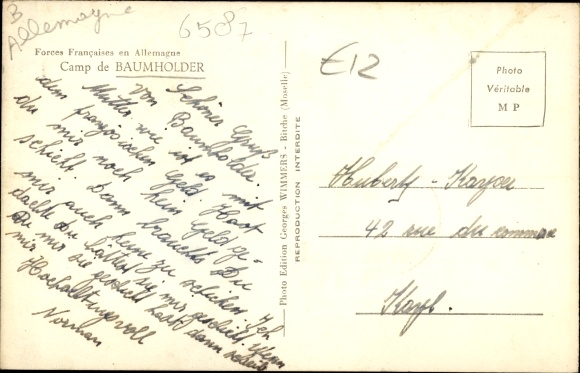 B
Allemagne
6587
Forces Françaises en Allemagne
Camp de BAUMHOLDER
€12
Photo
Véritable
M P
Photo Edition Georges WIMMERS - Bitche (Moselle)
REPRODUCTION INTERDITE
Schöner Gruß
von Baumholder.
Mutter wie ist es mit
dem französichen Geld. Hast
du mir noch kein Geld ge-
schickt. Dann brauchst Du
mir auch keine zu schicken. Ich
dachte Du hättest sie mir geschickt. Wenn
Du mir sie geschickt hast dann
mir
Hochachtungsvoll
Norman
Huberty - Kayser
42 rue du commerce
Kayl.